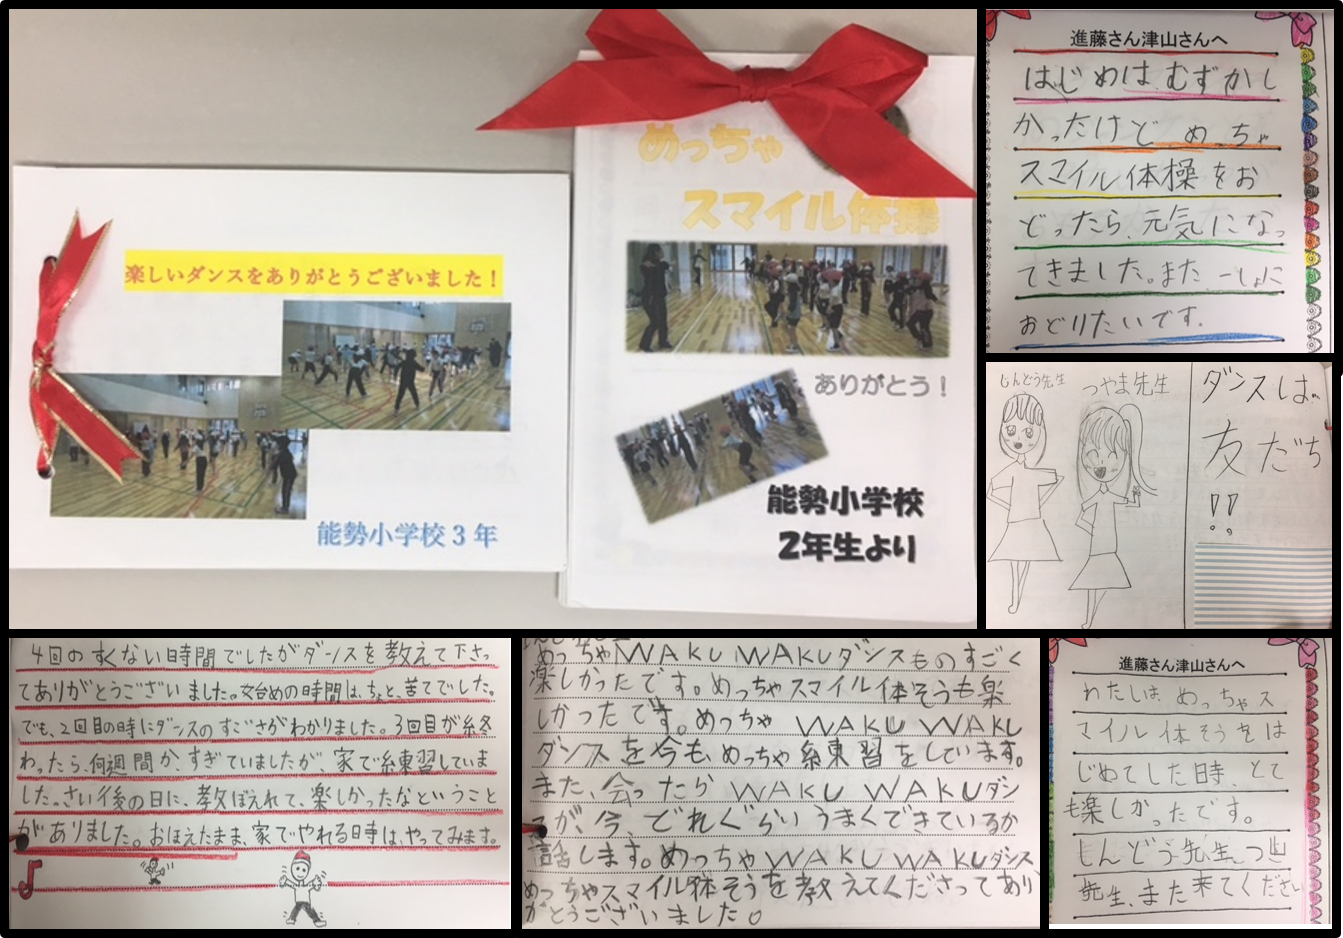 楽しいダンスをありがとうございました！
能勢小学校３年
めっちゃ
スマイル体操
ありがとう！
能勢小学校
2年生より
進藤さん津山さんへ
はじめはむずかし
かったけど めっちゃ
スマイル体操をお
どったら、元気になっ
てきました。また一しょに
おどりたいです。
しんどう先生
つやま先生
ダンスは
友だち
!!
4回のすくない時間でしたがダンスを教えて下さっ
てありがとうございました。始めの時間は、ちょと、苦てでした。
でも、2回目の時にダンスのすごさがわかりました。3回目が終
わったら、何週間か、すぎていましたが、家で練習していま
した。さい後の日に、教ぼえれて、楽しかったなということ
がありました。おぼえたまま、家でやれる時は、やってみます。
めっちゃWAKUWAKUダンスものすごく
楽しかったです。めっちゃスマイル体そうも楽
しかったです。めっちゃ WAKU WAKU
ダンスを今も、めっちゃ練習をしています。
また、会ったら WAKU WAKUダン
スが、今、どれぐらいうまくできているか
話します。めっちゃWAKUWAKUダンス
めっちゃスマイル体そうを教えてくださってあり
がとうございました。
進藤さん津山さんへ
わたしは、めっちゃス
マイル体そうをは
じめてした時、とて
も楽しかったです。
しんどう先生、つ山
先生、また来てください